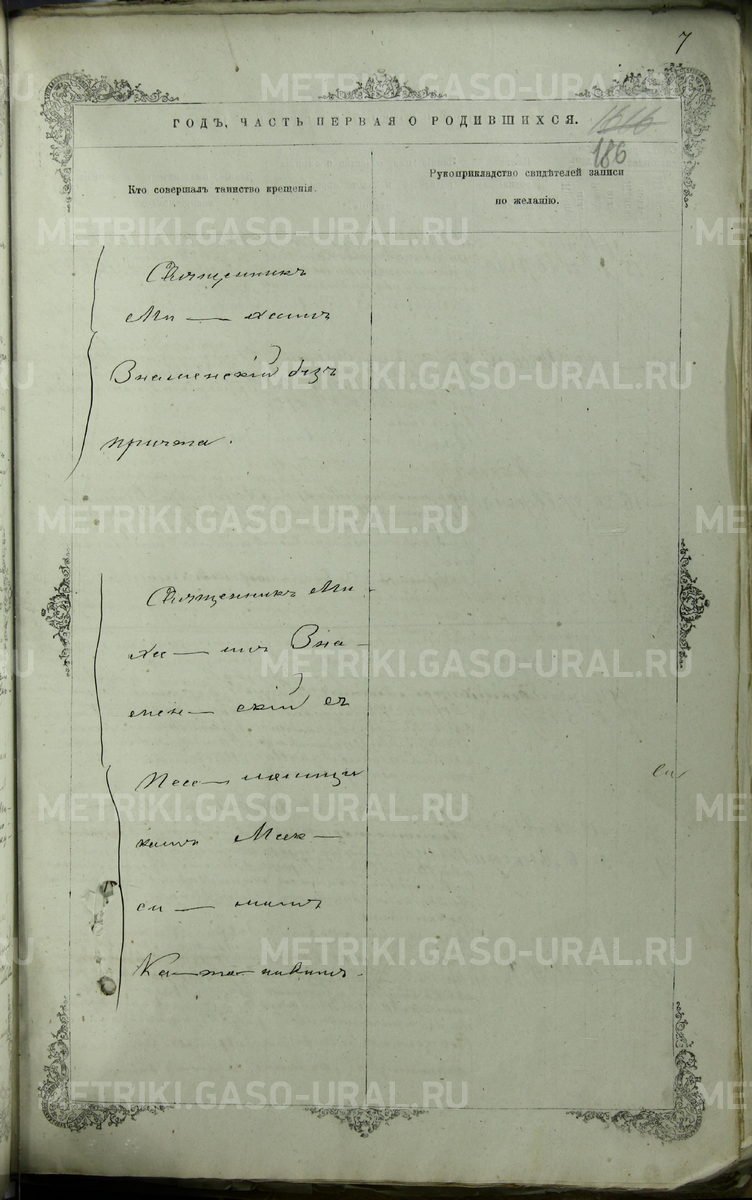 7
ГОДЪ, ЧАСТЬ ПЕРВАЯ О РОДИВШИХСЯ.
186
Кто совершалъ таинство крещенія.
Рукоприкладство свидѣтелей записи
по желанію.
Священникъ
Ми — хаилъ
Знаменскій безъ
причта.
Священникъ Ми-
ха — илъ Зна-
мен — скій съ
Псаломщи
комъ Мак-
си — момъ
METRIKI.GASO-URAL.RU
METRIKI.GASO-URAL.RU
METRIKI.GASO-URAL.RU
METRIKI.GASO-URAL.RU
METRIKI.GASO-URAL.RU
METRIKI.GASO-URAL.RU
METRIKI.GASO-URAL.RU
METRIKI.GASO-URAL.RU